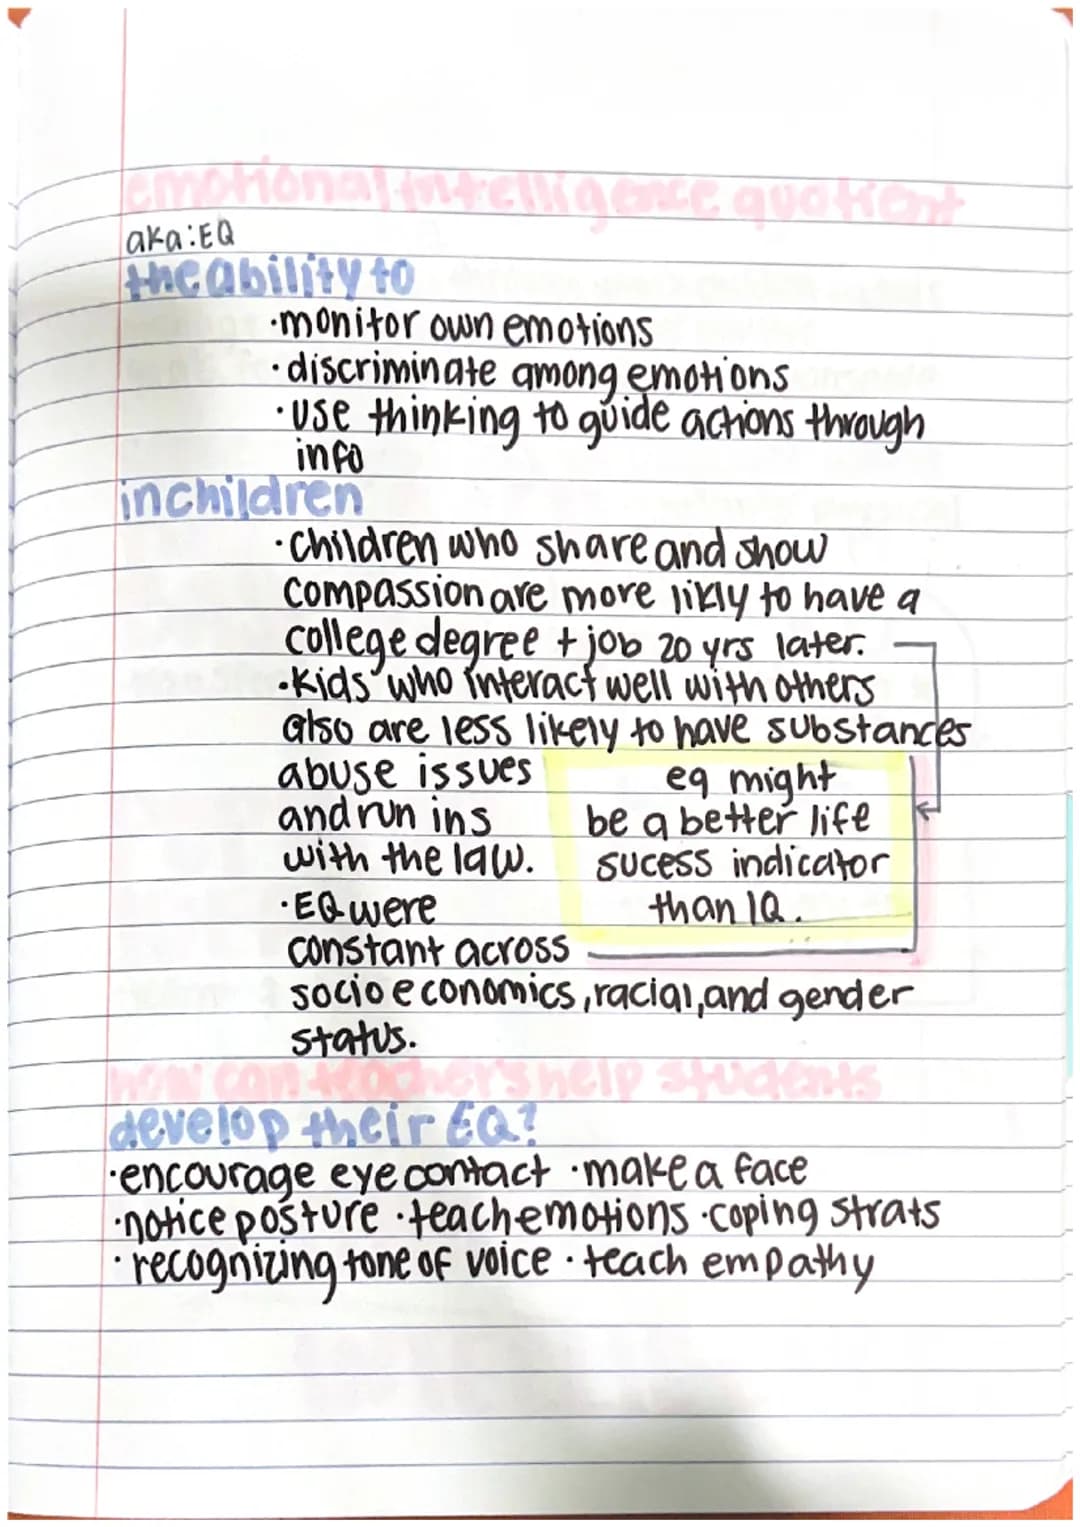 emotional intelligence quotient
aka:EQ
the ability to
·monitor own emotions
·discriminate among emotions
·use thinking to guide actions through
info
in children
·children who share and show
compassion are more likly to have a
college degree + job 20 yrs later.
·kids who interact well with others
also are less likely to have substances
abuse issues
and run ins
with the law.
eq might
be a better life
sucess indicator
than IQ.
·EQ were
constant across
socioeconomics, racial, and gender
status.
how can teacher's help students
develop their EQ?
·encourage eye contact ·make a face
·notice posture ·teach emotions ·coping strats
·recognizing tone of voice ·teach empathy